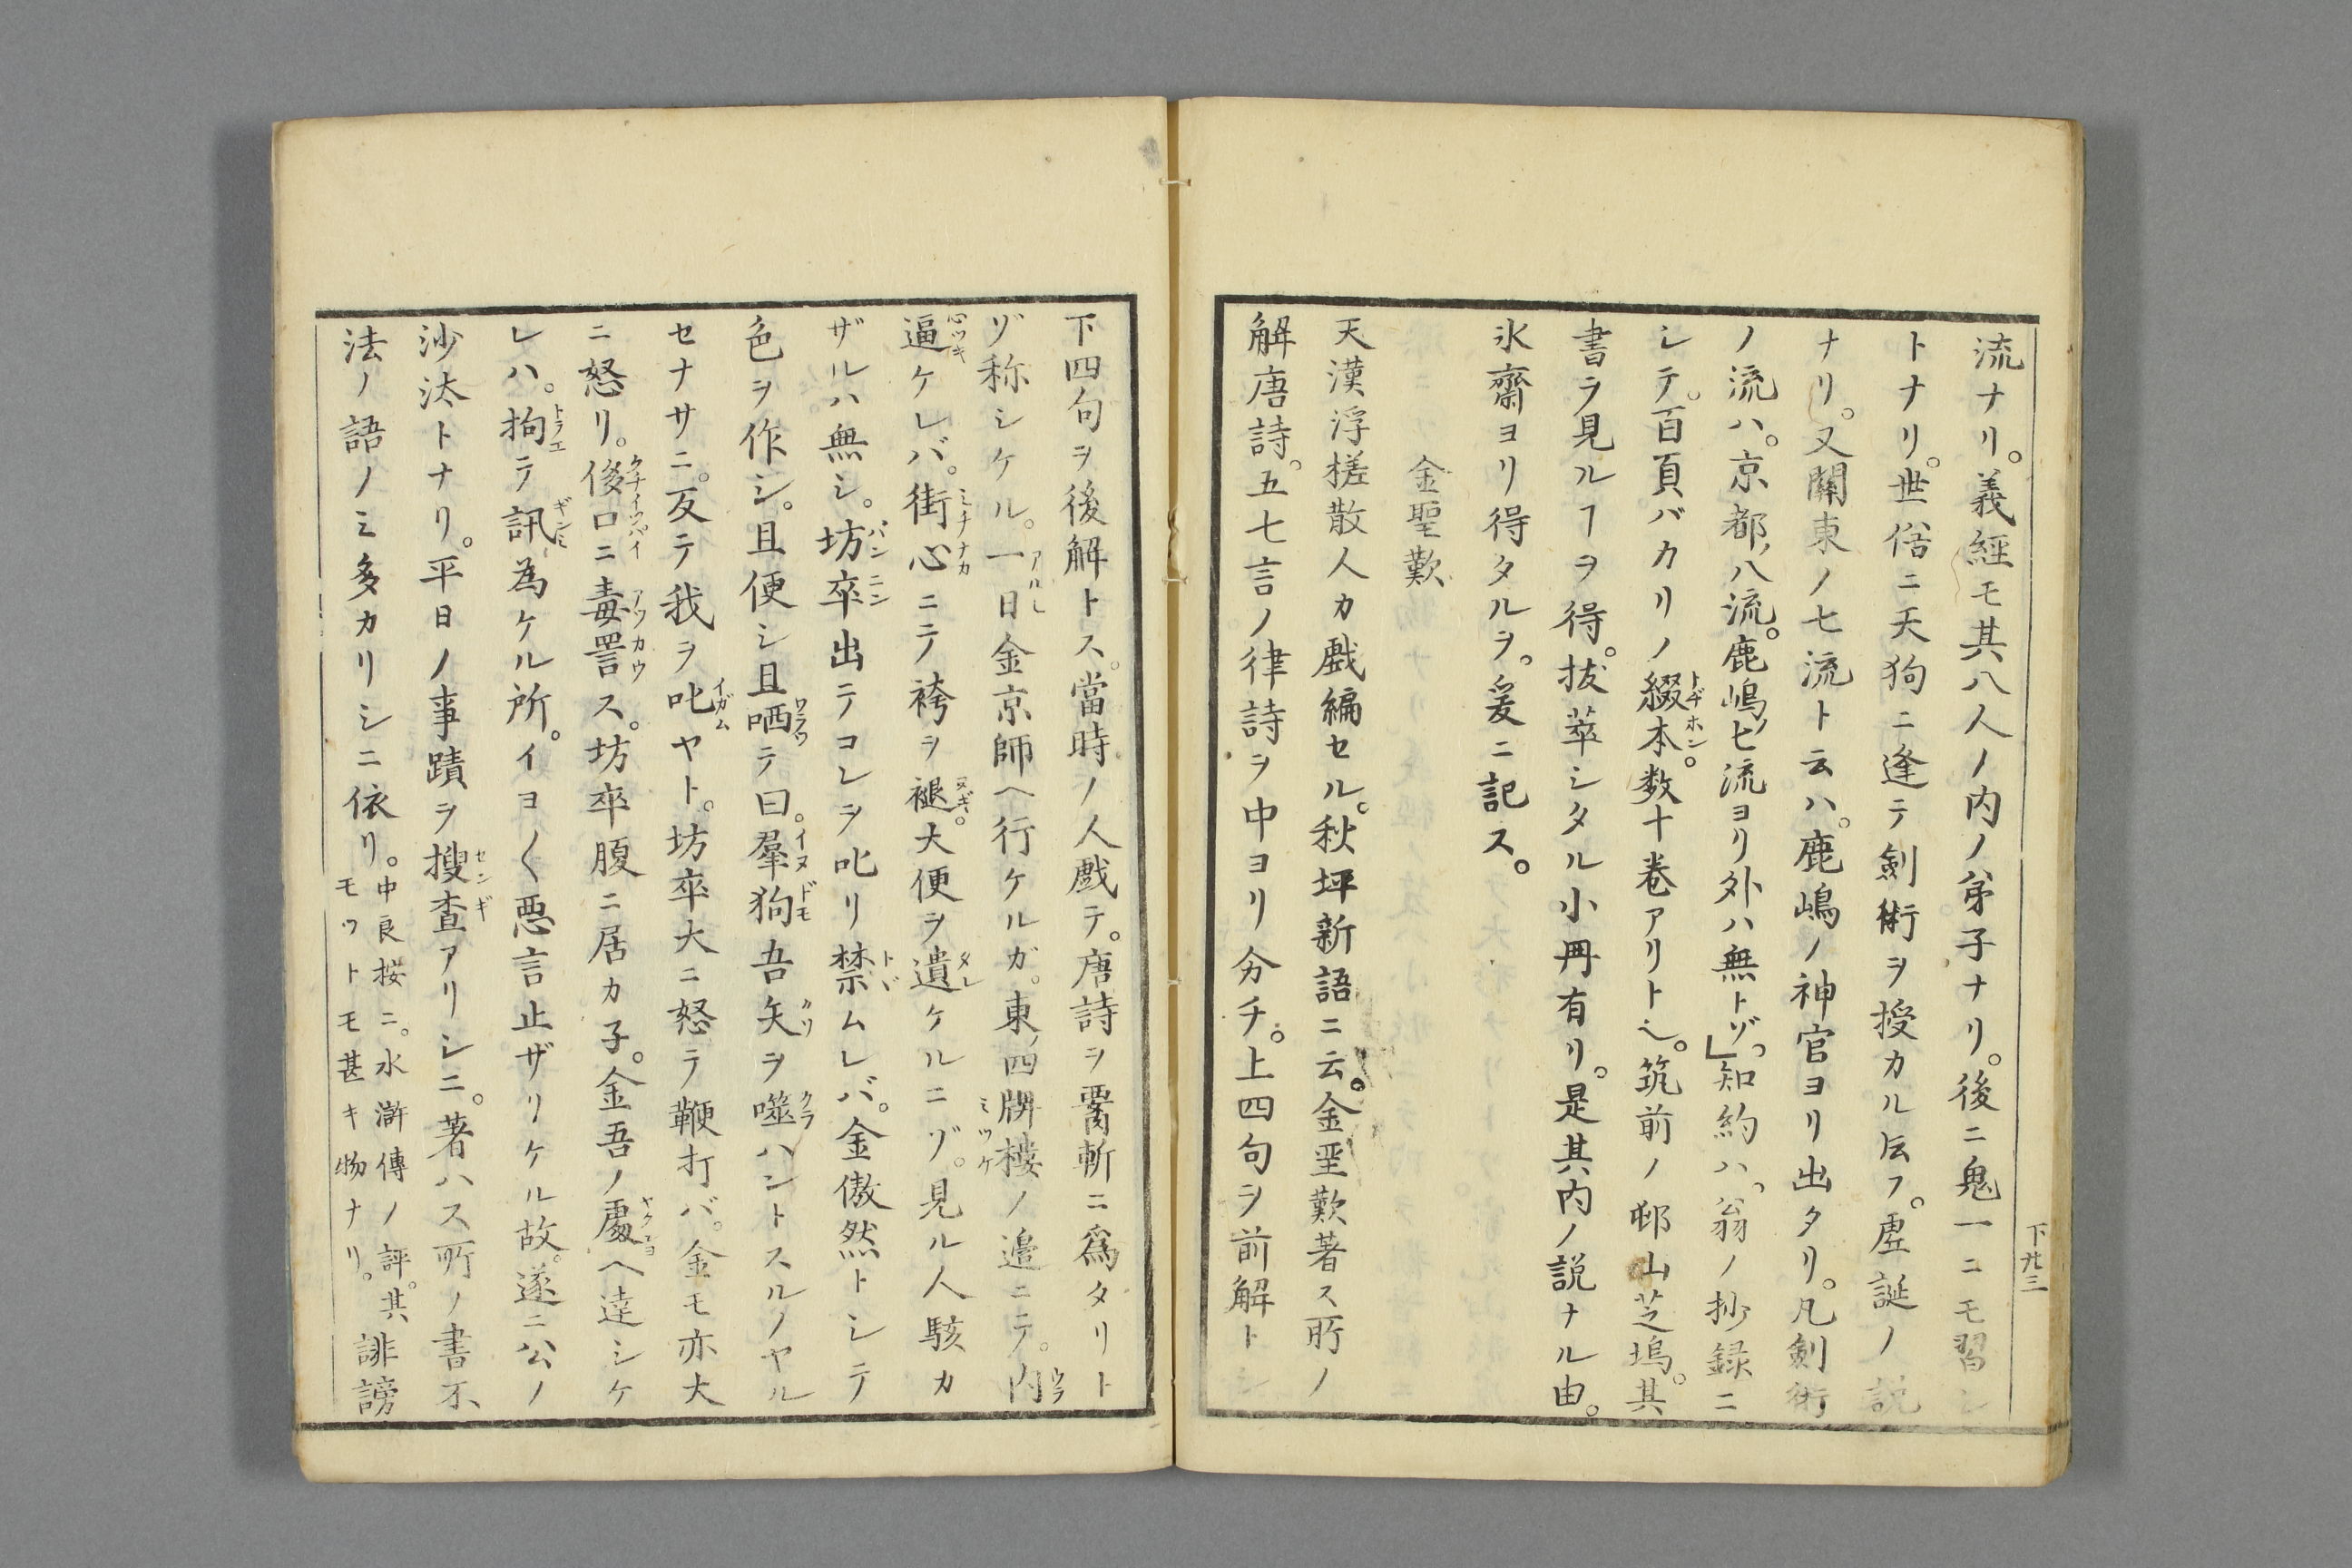 下廾三
流ナリ。義經モ其八人ノ内ノ弟子ナリ。後ニ鬼一ニモ習シ
トナリ。世俗ニ天狗ニ逢テ劍術ヲ授カル伝フ。虚誕ノ説
ナリ。又關東ノ七流ト云ハ。鹿嶋ノ神官ヨリ出タリ。凡劍術
ノ流ハ。京都ノ八流。鹿嶋ノ七流ヨリ外ハ無トゾ。」知約ハ。翁ノ抄録ニ
シテ。百頁バカリノ綴本。数十巻アリト乀。筑前ノ邨山芝塢。其
書ヲ見ルヿヲ得。抜萃シタル小冊有リ。是其内ノ説ナル由。
氷齋ヨリ得タルヲ。爰ニ記ス。
金聖歎
天漢浮槎散人カ戯編セル。秋坪新語ニ云。金聖歎著ス所ノ
解唐詩。五七言ノ律詩ヲ中ヨリ分チ。上四句ヲ前解トシ
下四句ヲ後解トス。當時ノ人戯テ。唐詩ヲ腰斬ニ爲タリト
ゾ称シケル。一日金京師ヘ行ケルガ。東ノ四牌樓ノ邉ニテ。内
逼ケレバ。街心ニテ袴ヲ褪。大便ヲ遺ケルニゾ。見ル人駭カ
ザルハ無シ。坊卒出テコレヲ叱リ禁ムレバ。金傲然トシテ
色ヲ作シ。且便シ且哂テ曰。羣狗吾矢ヲ噬ハントスルノヤル
セナサニ。反テ我ヲ叱ヤト。坊卒大ニ怒テ鞭打バ。金モ亦大
ニ怒リ。俊口ニ毒詈ス。坊卒腹ニ居カ子。金吾ノ處ヘ達シケ
レハ。拘テ訊為ケル所。イヨ〱悪言止ザリケル故。遂ニ公ノ
沙汰トナリ。平日ノ事蹟ヲ搜査アリシニ。著ハス所ノ書不
法ノ語ノミ多カリシニ依リ。中良按ニ。水滸傳ノ評。其誹謗
モツトモ甚キ物ナリ。